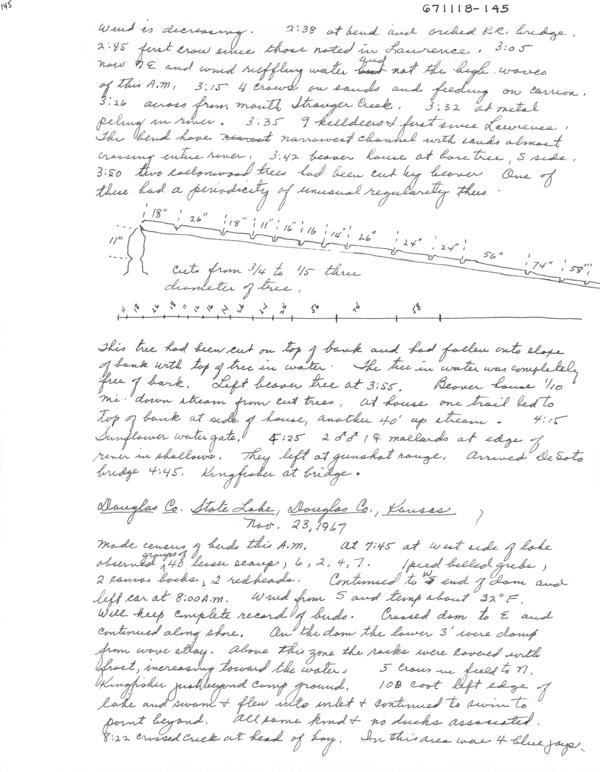 145
671118-145
Wind is decreasing. 2:38 at bend and arched R.R. bridge.
2:45 first crow since those noted in Lawrence. 3:05
now NE and wind ruffling water and not the high waves
of this A.M. 3:15 4 crows on sands and feeding on carrion.
3:26 across from mouth Stranger Creek. 3:32 at metal
piling in river. 3:35 9 killdeers & first since Lawrence.
This bend have narrowest channel with sands almost
crossing entire river. 3:42 beaver house at bare tree, S side.
3:50 two cottonwood trees had been cut by beaver One of
these had a periodicity of unusual regularity thus
18" 26" 18" 11" 16" 16 14" 26" 24" 24" 56" 74" 58"
11"
cuts from 3/4 to 1/5 thru
diameter of tree.
11 18 26 18 11 16 16 14 26 24 24 56 74 58
This tree had been cut on top of bank and had fallen onto slope
of bank with top of tree in water. The tree in water was completely
free of bark. Left beaver tree at 3:55. Beaver house 1/10
mi. down stream from cut trees. At house one trail led to
top of bank at side of house, another 40' up stream. 4:15
Sunflower water gate. 4:25 2 ♂♂ 1♀ mallards at edge of
river in shallows. They left at gunshot range. Arrived DeSoto
bridge 4:45. Kingfisher at bridge.
Douglas Co. State Lake, Douglas Co., Kansas
Nov. 23, 1967
Made census of birds this A.M. At 7:45 at west side of lake
observed groups of 40 lesser scaup, 6, 2, 4, 7. 1 pied billed grebe,
2 canvas backs, 2 redheads. Continued to W end of dam and
left car at 8:00 A.M. Wind from S and temp about 32° F.
Will keep complete record of birds. Crossed dam to E and
continued along shore. On the dam the lower 3' were damp
from wave spray. Above this zone the rocks were covered with
frost, increasing toward the water. 5 Crows in field to N.
Kingfisher just beyond camp ground. 108 coot left edge of
lake and swam & flew into inlet & continued to swim to
point beyond. All same kind & no ducks associated.
8:22 crossed creek at head of bay. In this area was 4 blue jays.